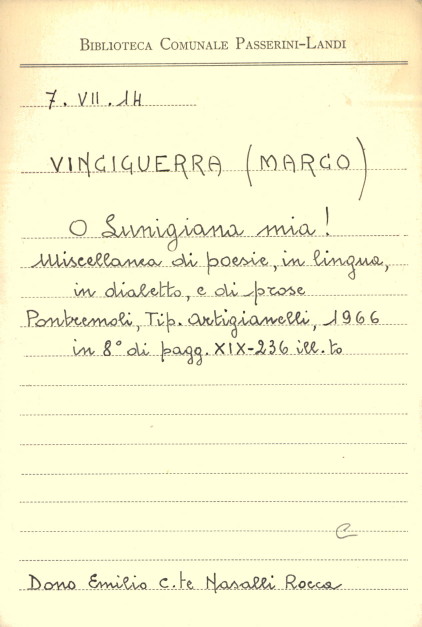 BIBLIOTECA COMUNALE PASSERINI-LANDI
7. VII. 14
VINCIGUERRA (MARCO)
O Lunigiana mia!
Miscellanea di poesie, in lingua,
in dialetto, e di prose
Pontremoli, Tip. Artigianelli, 1966
in 8° di pagg. XIX-236 ill.to
C
Dono Emilio C.te Nasalli Rocca